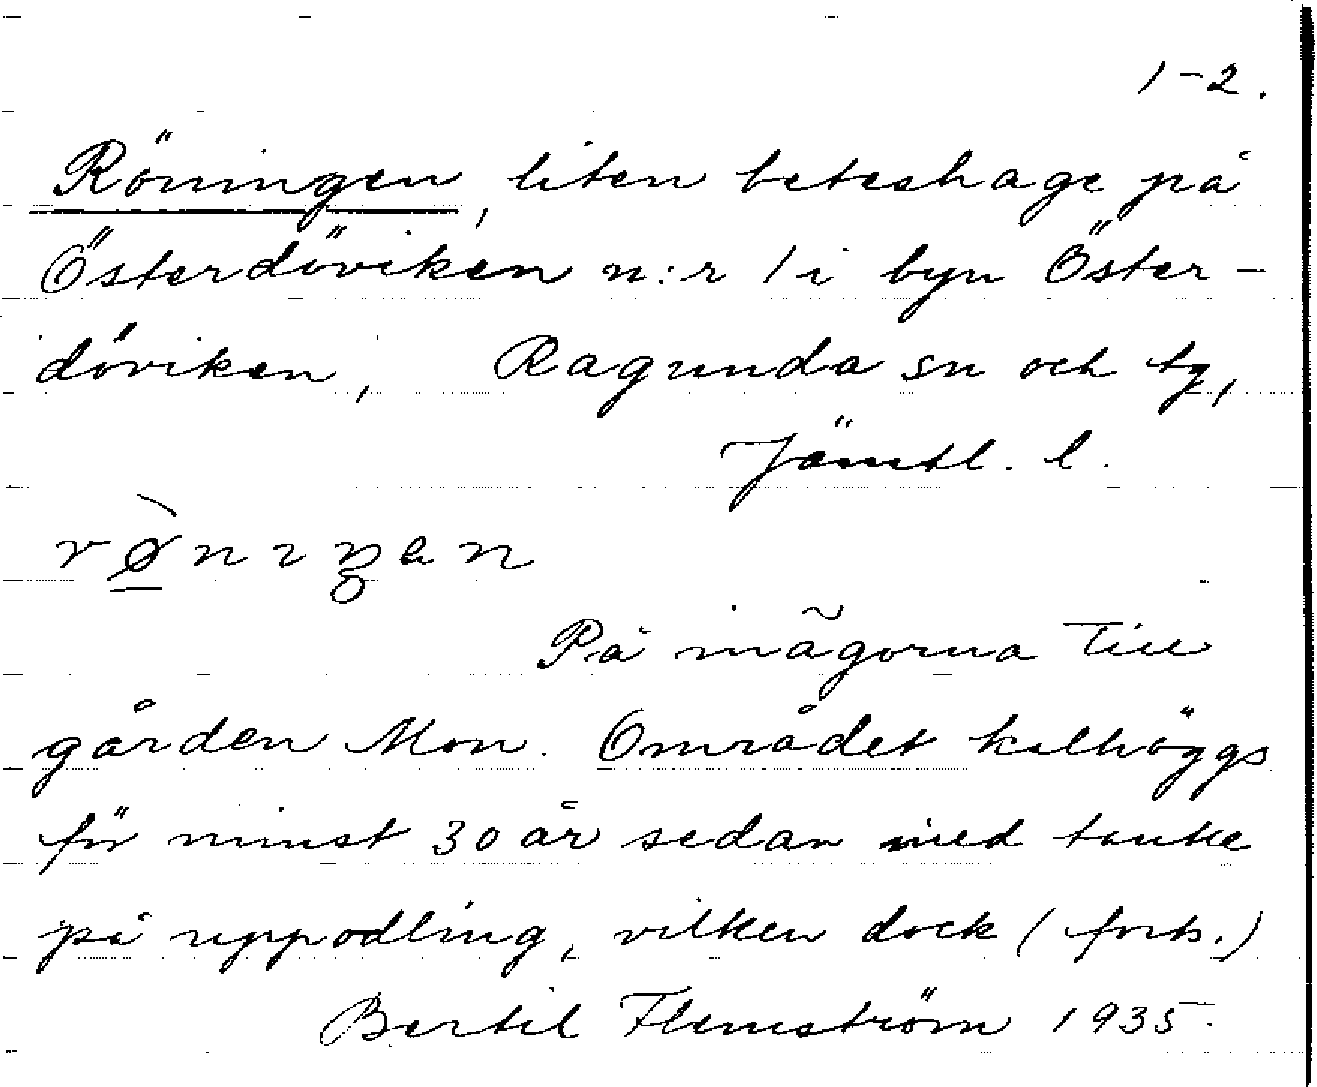 1-2.
Röningen, liten beteshage på
Österdöviken n:r 1 i byn Öster-
döviken, Ragunda sn och tg,
Jämtl. l.
rø̀nıŋen
På inägorna till
gården Mon. Området kalhöggs
för minst 30 år sedan med tanke
på uppodling, vilken dock (forts.)
Bertil Flemström 1935.